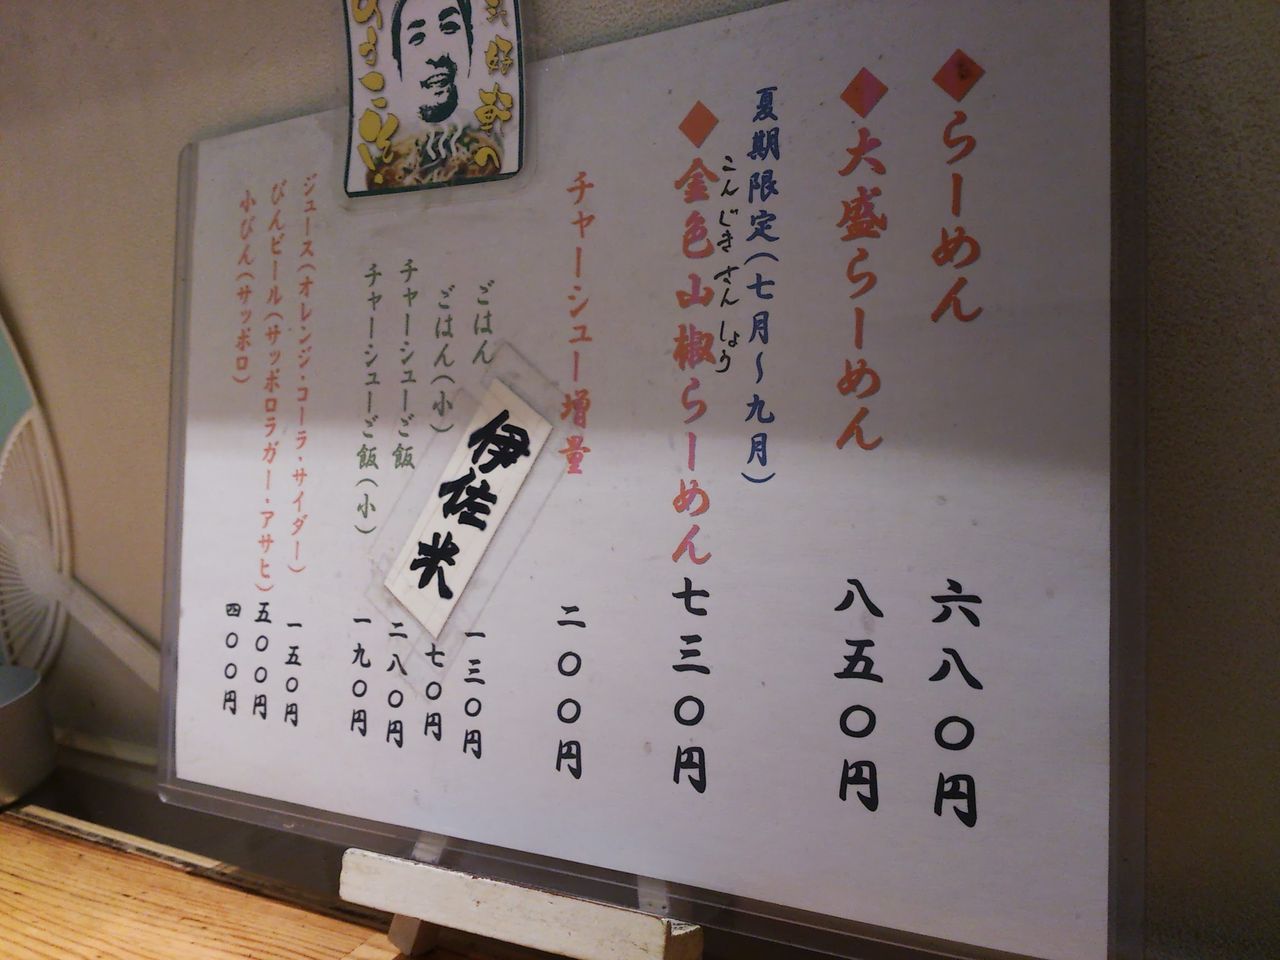 らーめん 六八〇円
大盛らーめん 八五〇円
夏期限定(七月～九月)
こんじきさんしょう
金色山椒らーめん 七三〇円
チャーシュー増量 二〇〇円
ごはん 一三〇円
ごはん(小) 七〇円
伊佐米
チャーシューご飯 二八〇円
チャーシューご飯(小) 一九〇円
ジュース(オレンジ・コーラ・サイダー) 一五〇円
びんビール(サッポロラガー・アサヒ) 五〇〇円
小びん(サッポロ) 四〇〇円